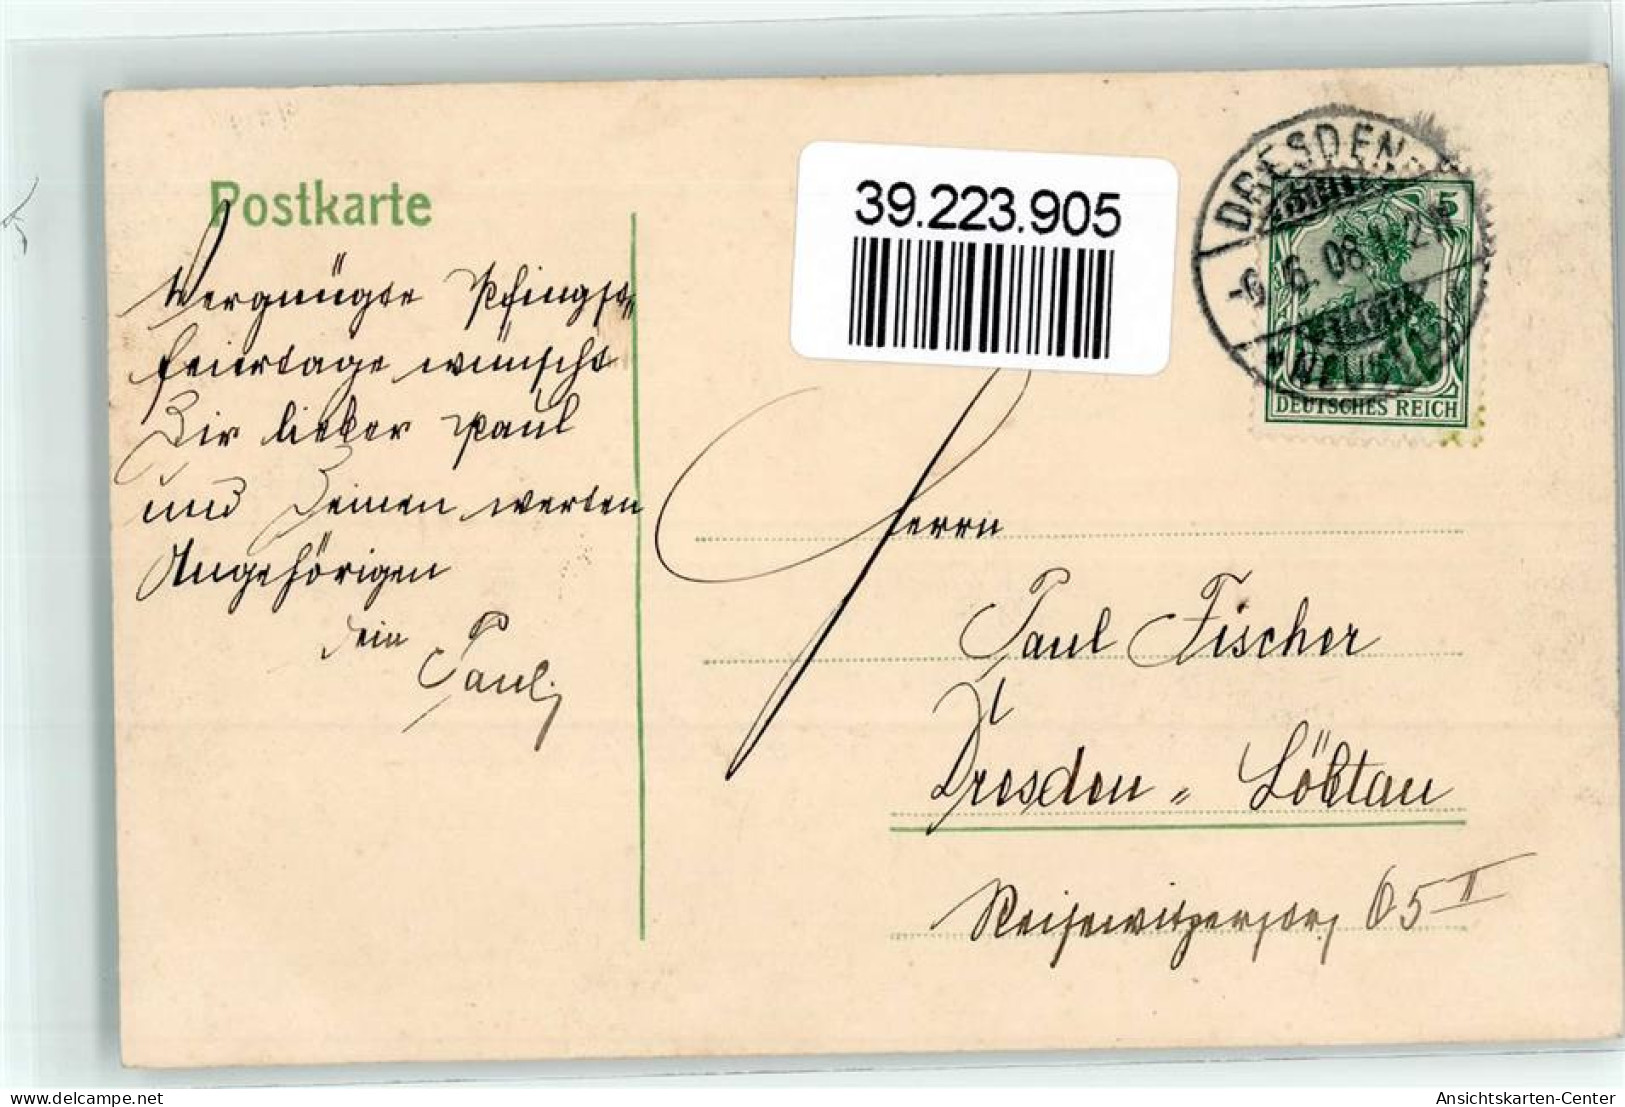 Postkarte
Vergnügte Pfingst„
feiertage wünscht
Dir lieber Paul
und Deinen werten
Angehörigen
Dein
Paul.
39.223.905
DRESDEN-
-6.6.08.1-2N
*NEUST.
5
DEUTSCHES REICH
Herrn
Paul Fischer
Dresden „ Löbtau
Reisewitzerstr. 65 II
Ansichtskarten-Center